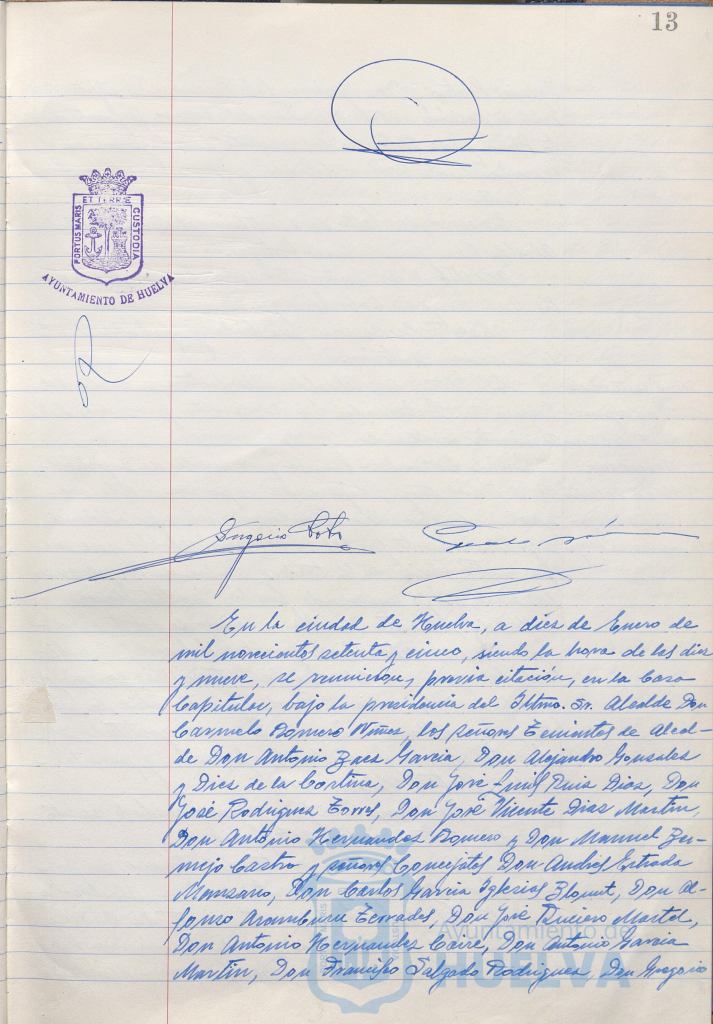 13
ET TERRÆ
PORTUS MARIS
CUSTODIA
AYUNTAMIENTO DE HUELVA
En la ciudad de Huelva, a diez de Enero de
mil novecientos setenta y cinco, siendo la hora de las diez
y nueve, se reunieron, previa citación, en la Casa
Capitular, bajo la presidencia del Iltmo. Sr. Alcalde Don
Carmelo Romero Núñez, los señores Tenientes de Alcal-
de Don Antonio Baez Garcia, Don Alejandro Gonzalez
y Diez de la Cortina, Don José Luis Ruiz Diaz, Don
José Rodriguez Torres, Don José Vicente Diaz Martin,
Don Antonio Hernandez Romero y Don Manuel Ber-
mejo Castro y señores Concejales Don Andres Estrada
Manzano, Don Carlos Garcia Iglesias Blount, Don Al-
fonso Aramburu Terrades, Don José Martel,
Don Antonio Hernandez Carre, Don Antonio Garcia
Martin, Don Francisco Salgado Rodriguez, Don Gregorio
Ayuntamiento de
HUELVA